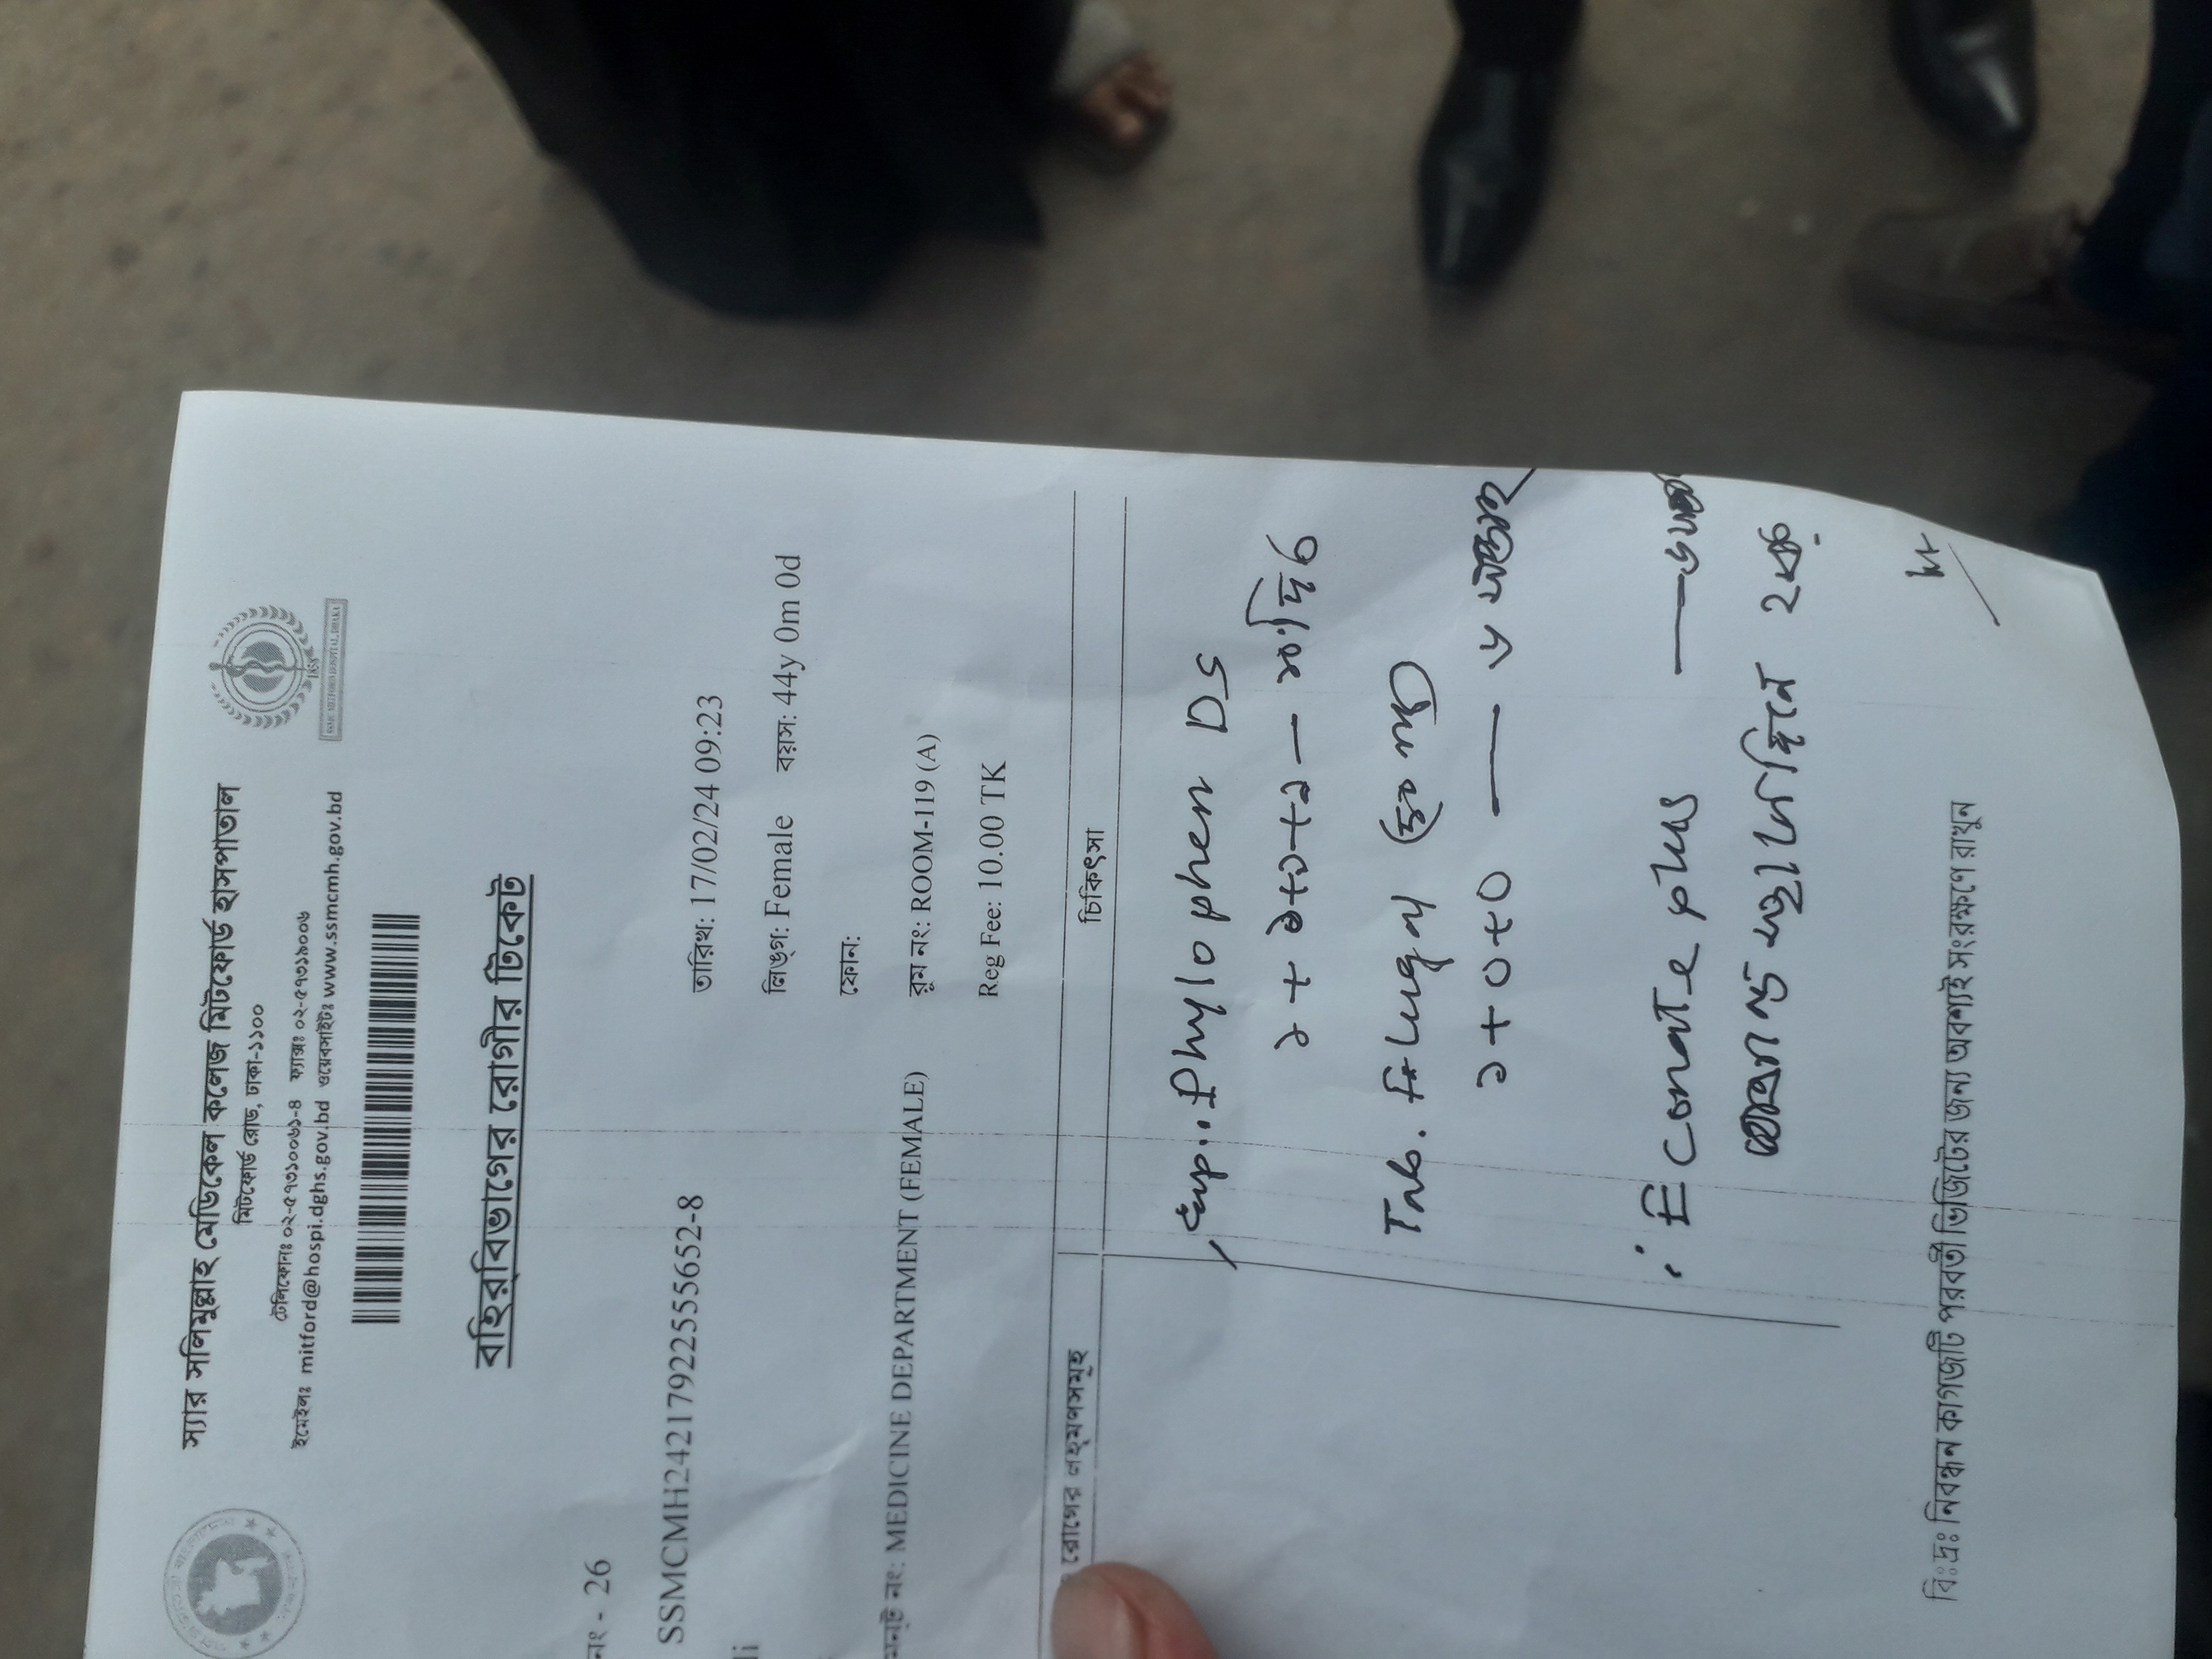 স্যার সলিমুল্লাহ মেডিকেল কলেজ মিটফোর্ড হাসপাতাল
মিটফোর্ড রোড, ঢাকা-১১০০
টেলিফোনঃ ০২-৫৭৩১০০৬১-৪ ফ্যাক্সঃ ০২-৫৭৩১৯০০৬
ইমেইলঃ mitford@hospi.dghs.gov.bd ওয়েবসাইটঃ www.ssmcmh.gov.bd
1858
SSMC MITFORD HOSPITAL, DHAKA
বহির্বিভাগের রোগীর টিকেট
নং - 26
SSMCMH24217922555652-8
তারিখ: 17/02/24 09:23
li
লিঙ্গ: Female বয়স: 44y 0m 0d
ফোন:
নং: MEDICINE DEPARTMENT (FEMALE)
রুম নং: ROOM-119 (A)
Reg Fee: 10.00 TK
রোগের লক্ষণসমূহ
চিকিৎসা
Phylophen DS
১ + ১+১+১ — ১০ দিন
Tab. Flugal (50 mg)
১+০+০ — ৬ সপ্তাহ
Econate plus — ৬
আক্রান্ত স্থানে দিনে ২
বিঃদ্রঃ নিবন্ধন কাগজটি পরবর্তী ভিজিটের জন্য অবশ্যই সংরক্ষণে রাখুন